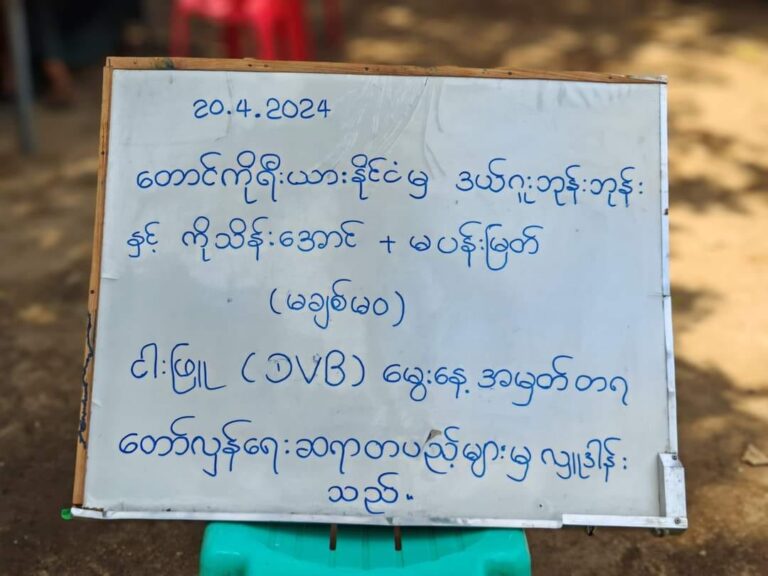 ၂၀.4.2024
တောင်ကိုရီးယားနိုင်ငံမှ ဒယ်ဂူးဘုန်းဘုန်း
နှင့် ကိုသိန်းအောင် + မပန်းမြတ်
(မချစ်မဝ)
ငါးဖြူ (DVB) မွေးနေ့ အမှတ်တရ
တော်လှန်ရေးဆရာတပည့်များမှ လှူဒါန်း
သည်။